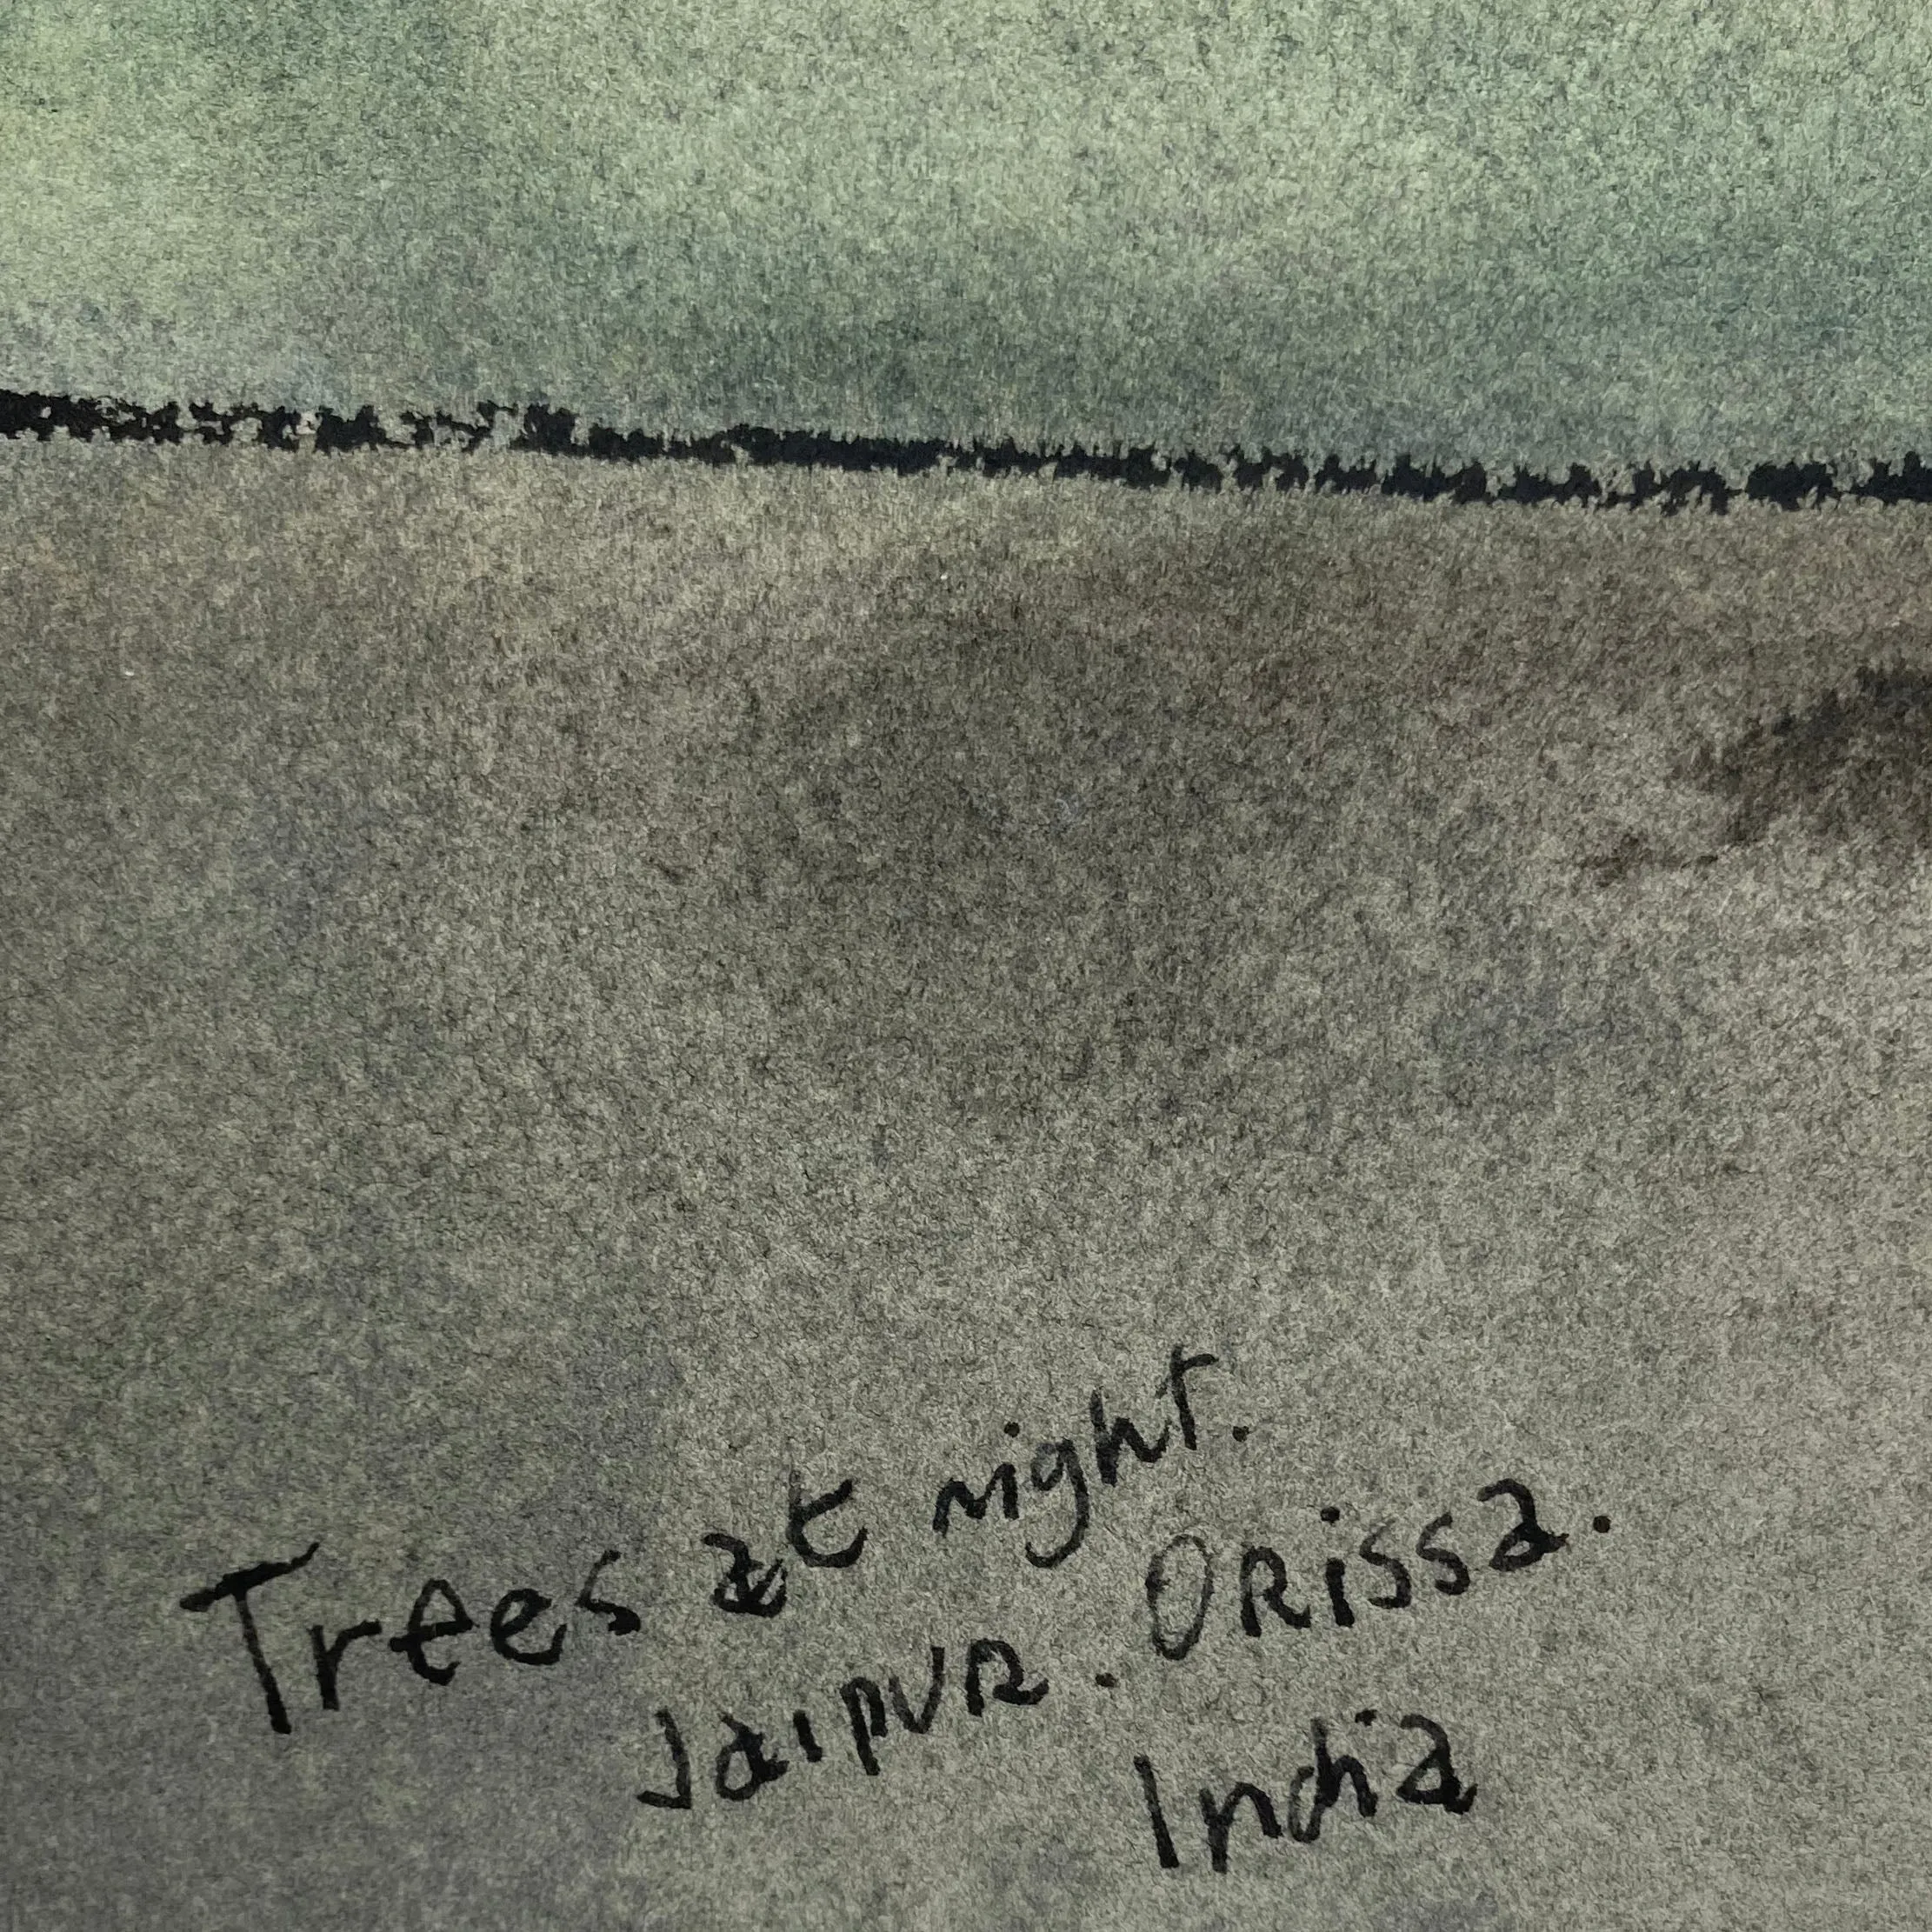 Trees at night.
Jaipur. Orissa.
India